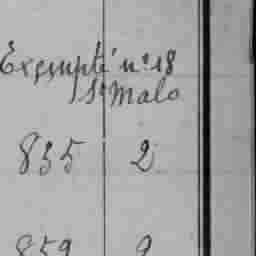 Exempté n° 18
St Malo
835 2
859 2